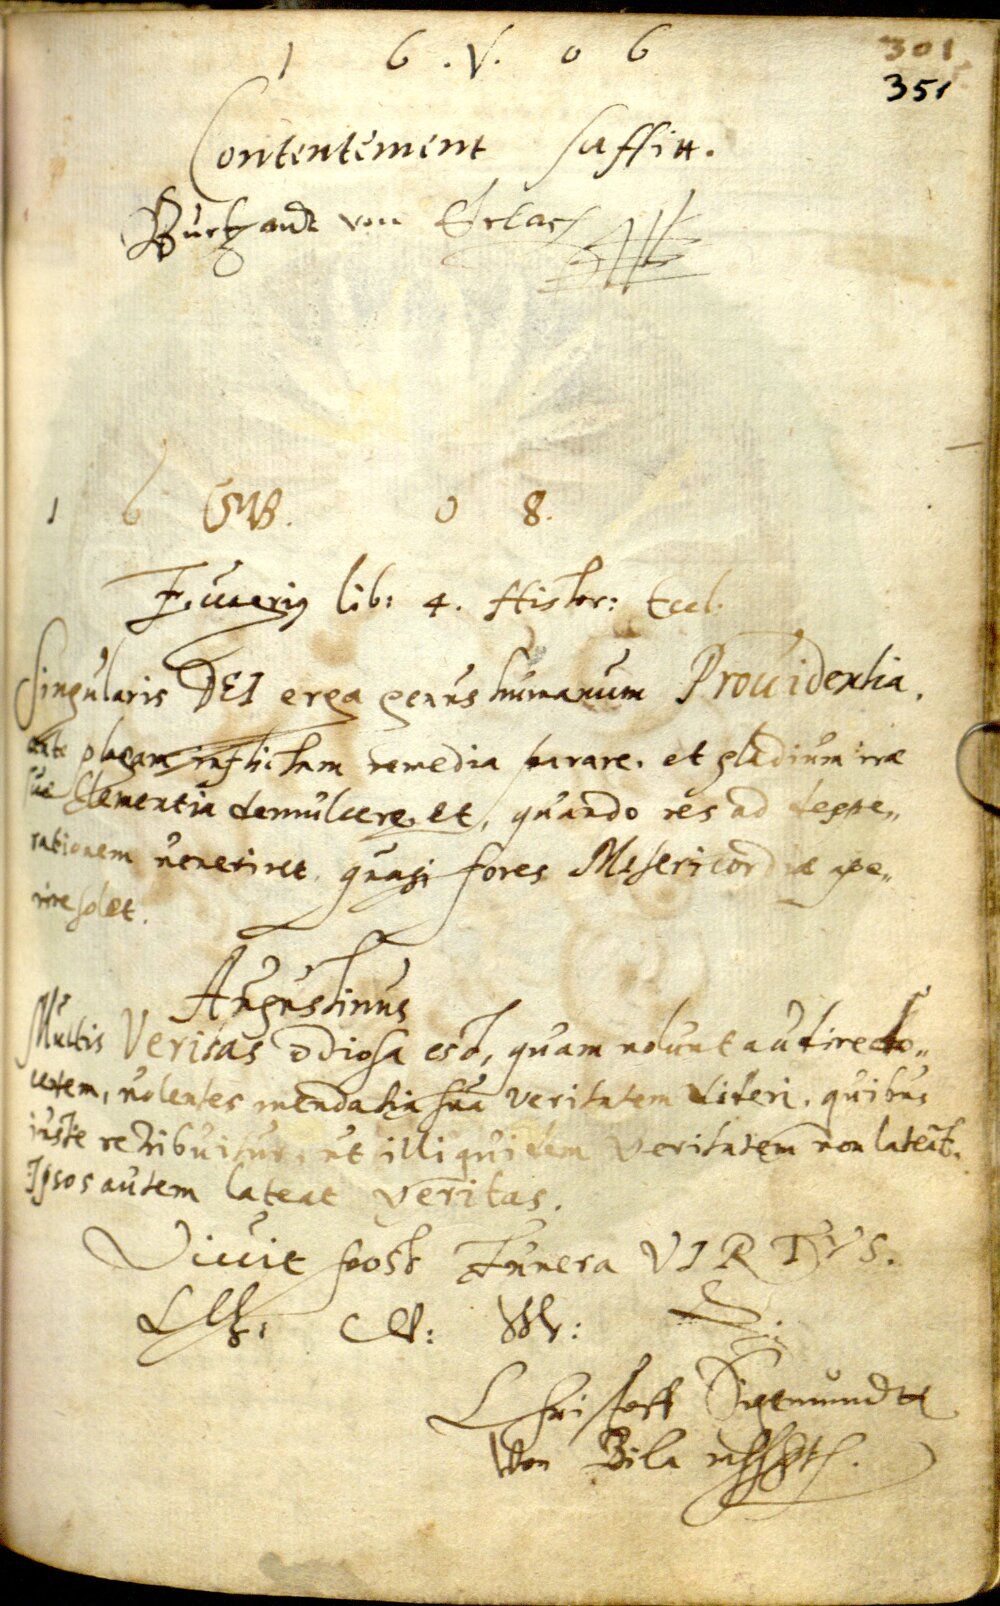 301
351
1 6 . V. 0 6
Contentement suffit.
Burkhardt von Erlach
1 6 GWB. 0 8.
Euaerius lib: 4. Histor: Eccl.
Singularis DEI erga genus humanum Prouidentia.
ante plagam inflictam remedia parare. et gladium iræ
suæ Clementia demulcere. et, quando res ad despe„
rationem uenerint quasi fores Misericordiæ ape„
rire solet.
Augustinus
Multis Veritas odiosa est, quam nolunt audire do„
centem, uolentes mendatia sua veritatem videri. quibus
iuste retribuitur, ut illi quidem veritatem non lateāt.
Ipsos autem lateat veritas.
Viuit post Funera VIRTVS.
Christoff Sigmundt
von Bila